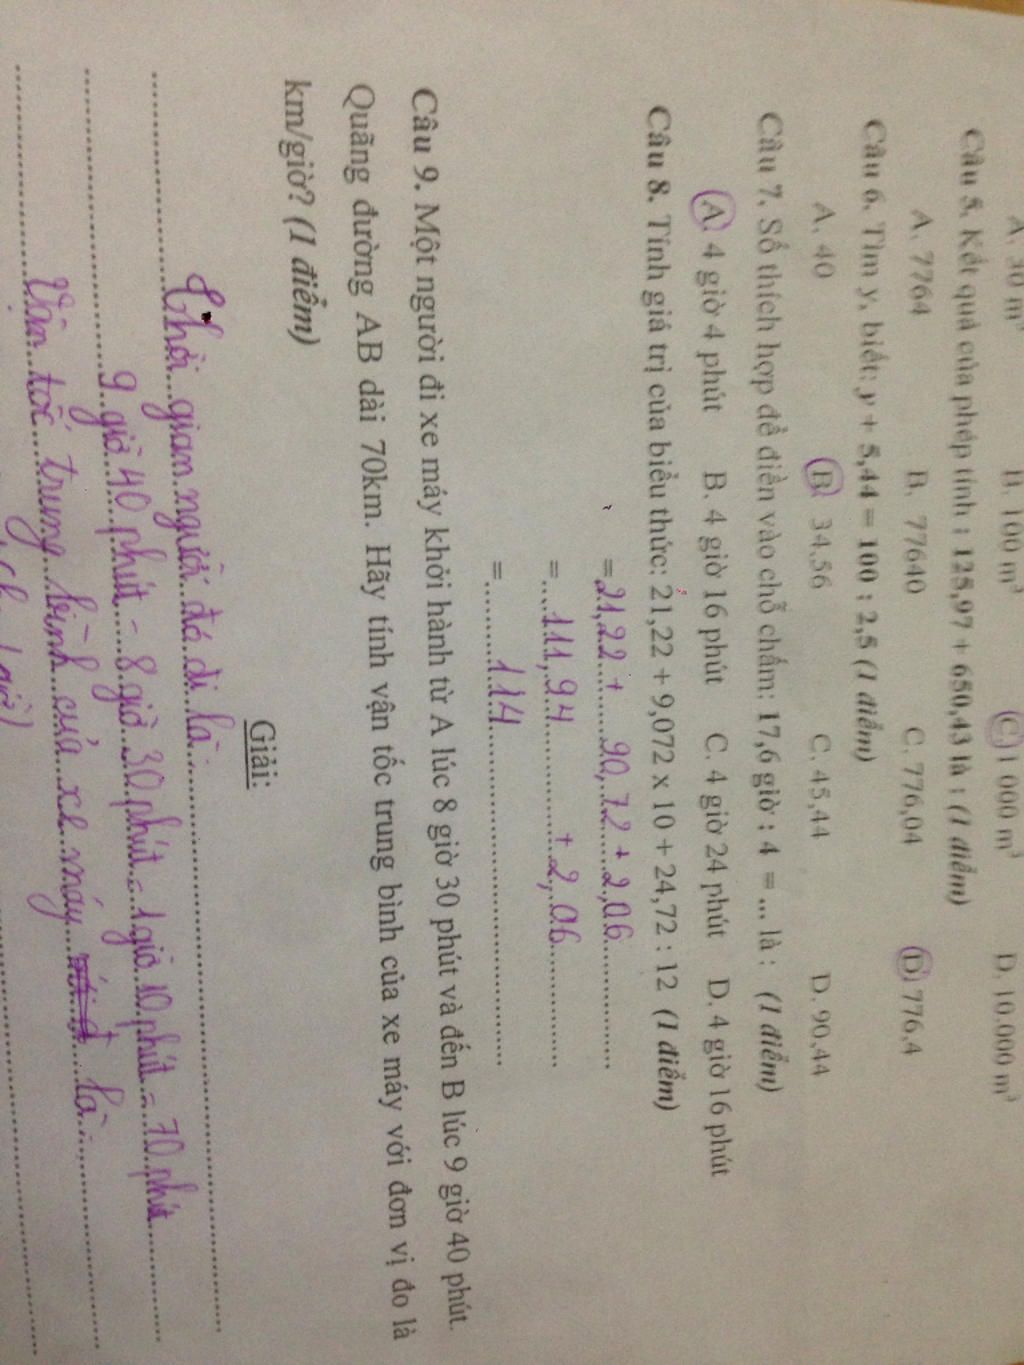 A. 30 m³ B. 100 m³ C. 1 000 m³ D. 10.000 m³
Câu 5. Kết quả của phép tính : 125,97 + 650,43 là : (1 điểm)
A. 7764 B. 77640 C. 776,04 D. 776,4
Câu 6. Tìm y, biết: y + 5,44 = 100 : 2,5 (1 điểm)
A. 40 B. 34,56 C. 45,44 D. 90,44
Câu 7. Số thích hợp để điền vào chỗ chấm: 17,6 giờ : 4 = ... là : (1 điểm)
A. 4 giờ 4 phút B. 4 giờ 16 phút C. 4 giờ 24 phút D. 4 giờ 16 phút
Câu 8. Tính giá trị của biểu thức: 21,22 + 9,072 x 10 + 24,72 : 12 (1 điểm)
= 21,22 + 90,72 + 2,06
= 111,94 + 2,06
= 114
Câu 9. Một người đi xe máy khởi hành từ A lúc 8 giờ 30 phút và đến B lúc 9 giờ 40 phút.
Quãng đường AB dài 70km. Hãy tính vận tốc trung bình của xe máy với đơn vị đo là
km/giờ? (1 điểm)
Giải:
Thời gian người đó đi là:
9 giờ 40 phút - 8 giờ 30 phút = 1 giờ 10 phút = 70 phút
Vận tốc trung bình của xe máy là: